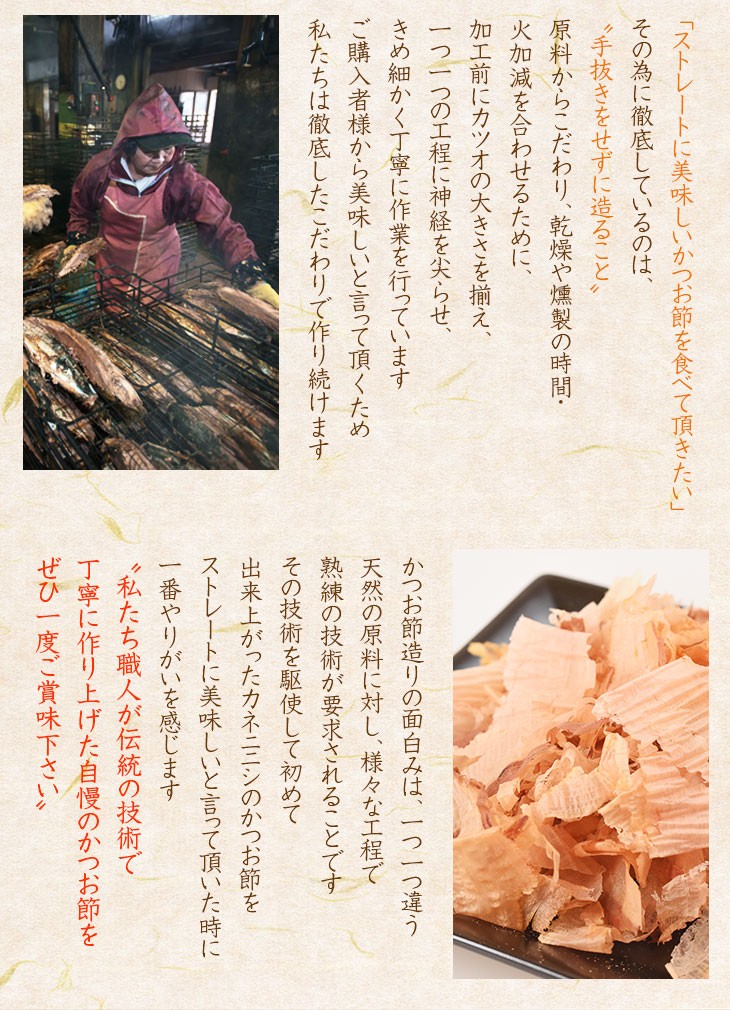 「ストレートに美味しいかつお節を食べて頂きたい」
その為に徹底しているのは、
〝手抜きをせずに造ること〟
原料からこだわり、乾燥や燻製の時間・
火加減を合わせるために、
加工前にカツオの大きさを揃え、
一つ一つの工程に神経を尖らせ、
きめ細かく丁寧に作業を行っています
ご購入者様から美味しいと言って頂くため
私たちは徹底したこだわりで作り続けます
かつお節造りの面白みは、一つ一つ違う
天然の原料に対し、様々な工程で
熟練の技術が要求されることです
その技術を駆使して初めて
出来上がったカネニニシのかつお節を
ストレートに美味しいと言って頂いた時に
一番やりがいを感じます
〝私たち職人が伝統の技術で
丁寧に作り上げた自慢のかつお節を
ぜひ一度ご賞味下さい〟